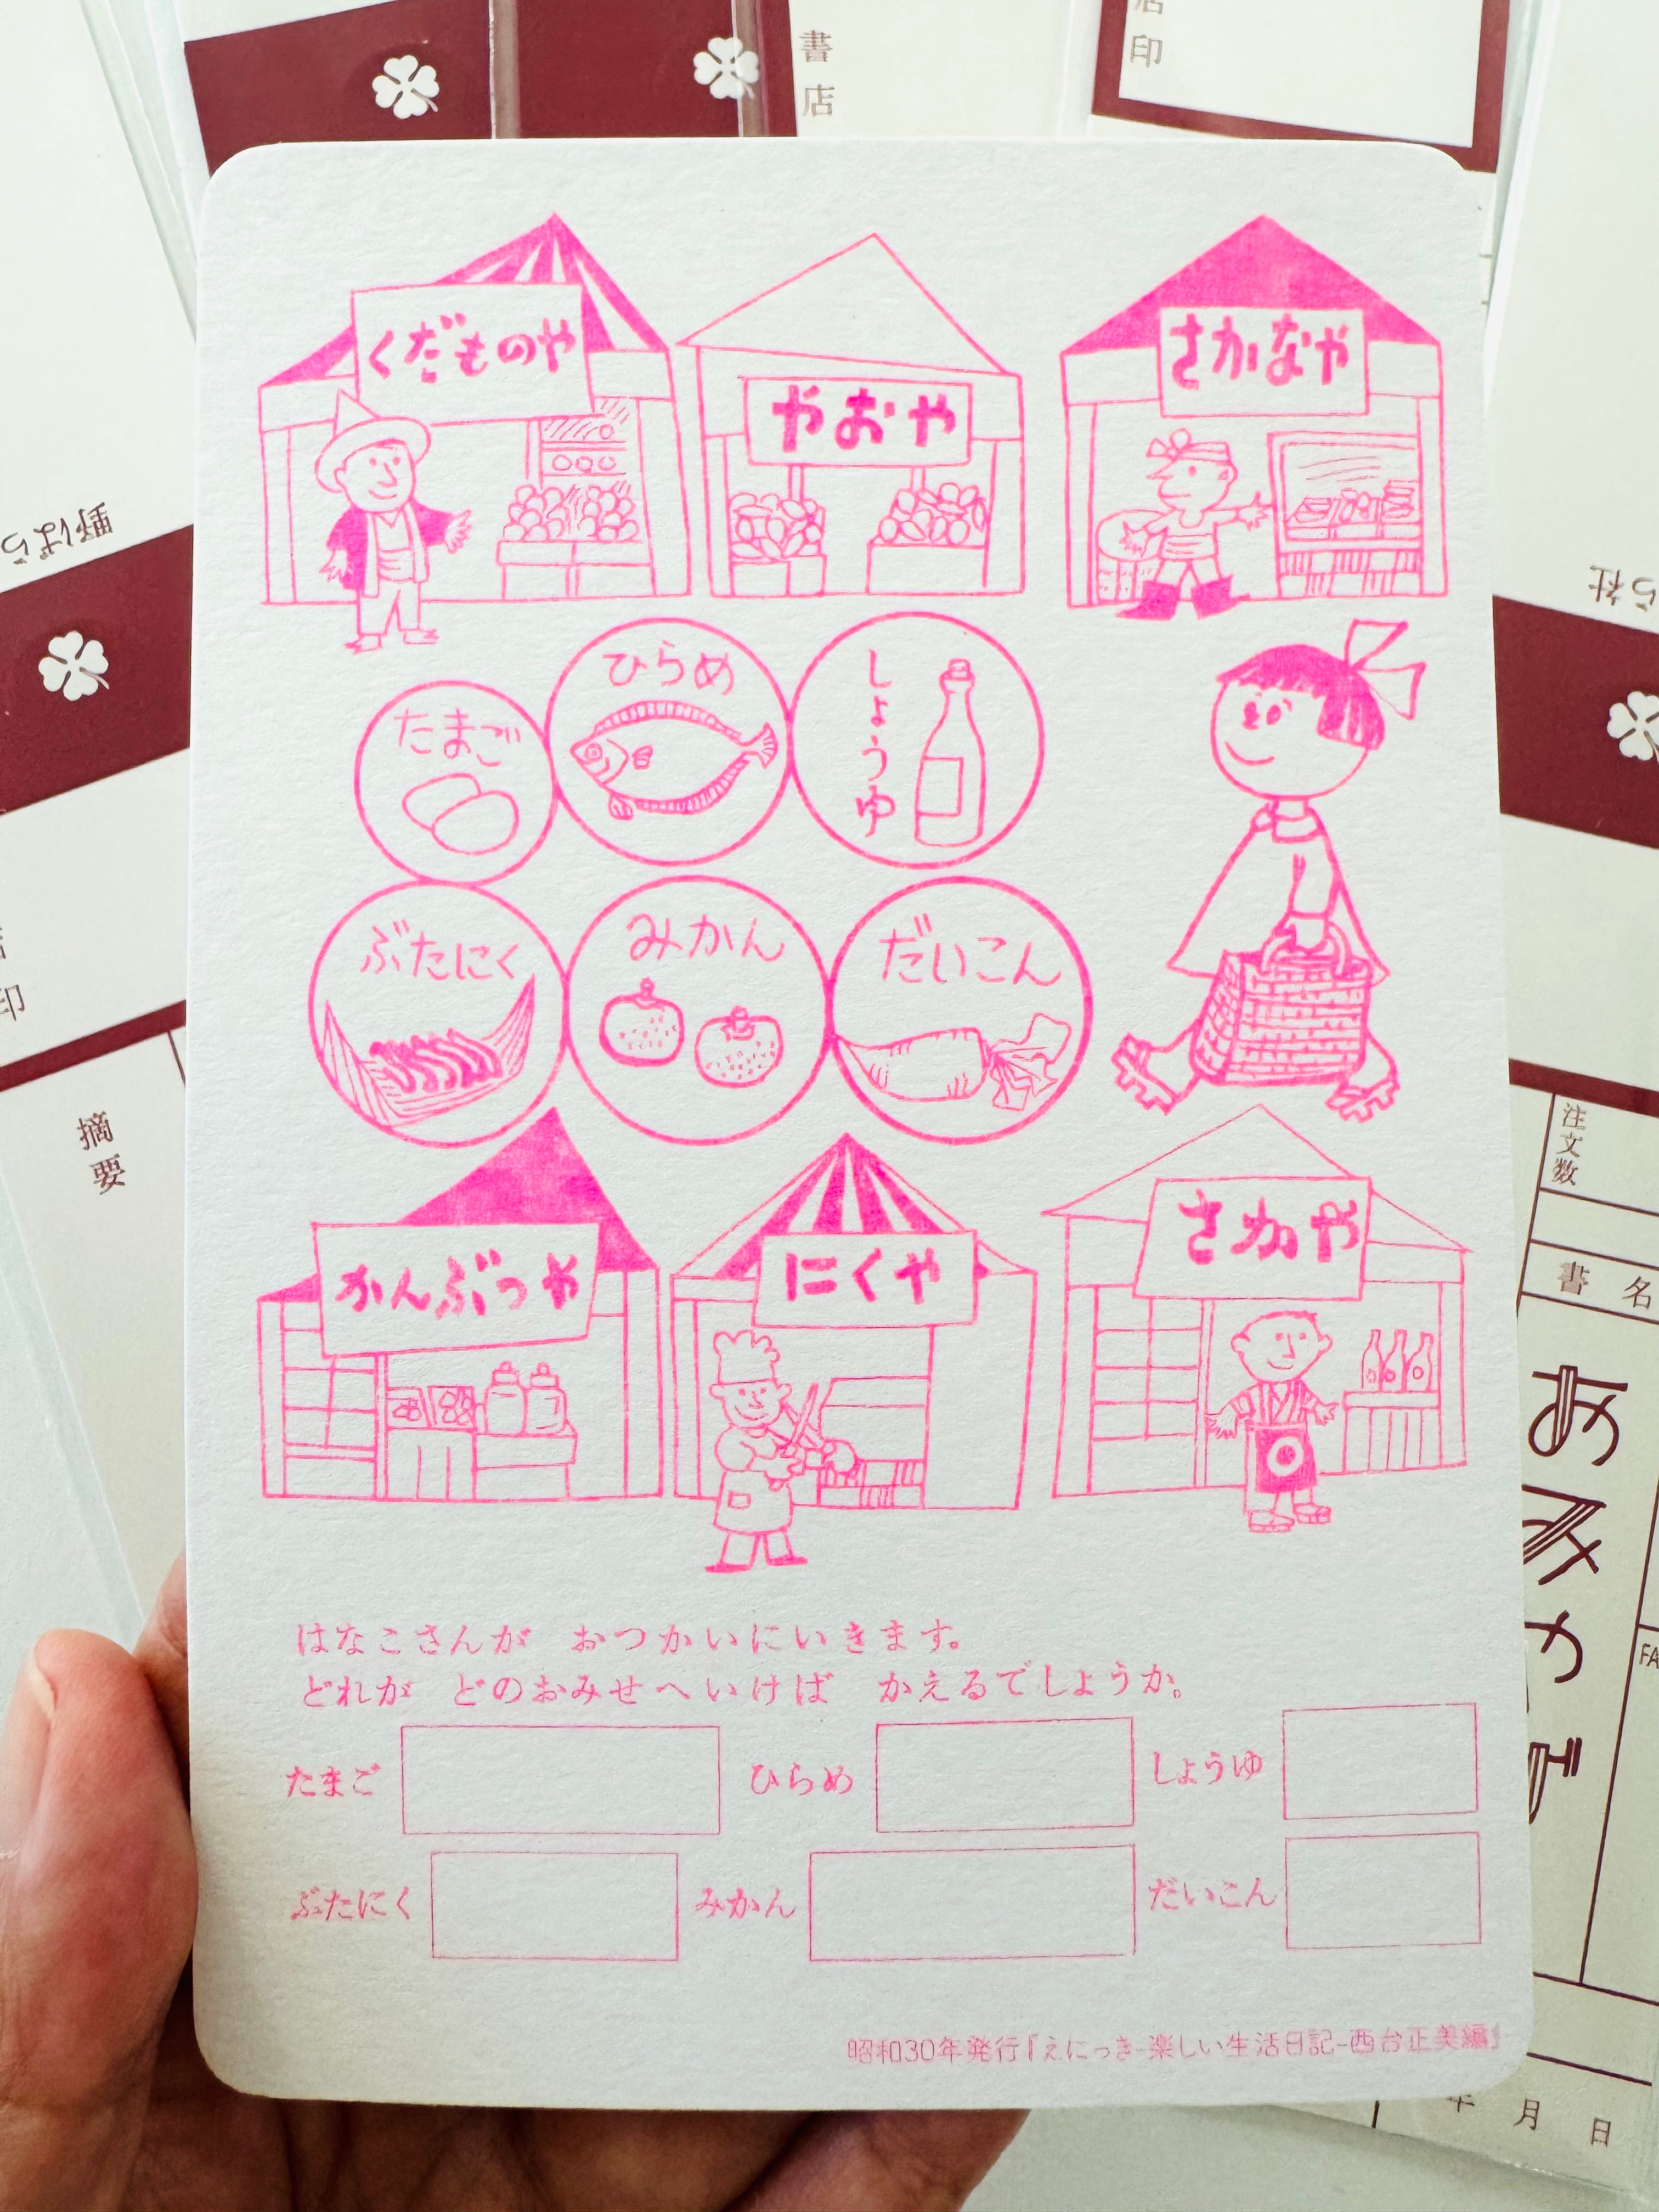 書店
店印
くだものや
やおや
さかなや
たまご
ひらめ
しょうゆ
ぶたにく
みかん
だいこん
かんぶつや
にくや
さかや
はなこさんが　おつかいにいきます。
どれが　どのおみせへいけば　かえるでしょうか。
たまご
ひらめ
しょうゆ
ぶたにく
みかん
だいこん
昭和30年発行『えにっき-楽しい生活日記-西台正美編』
野ばら
ら社
印
摘要
注文数
書名
FA
年 月 日